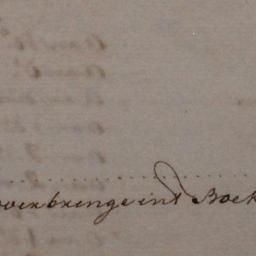 overbrenge int Boek